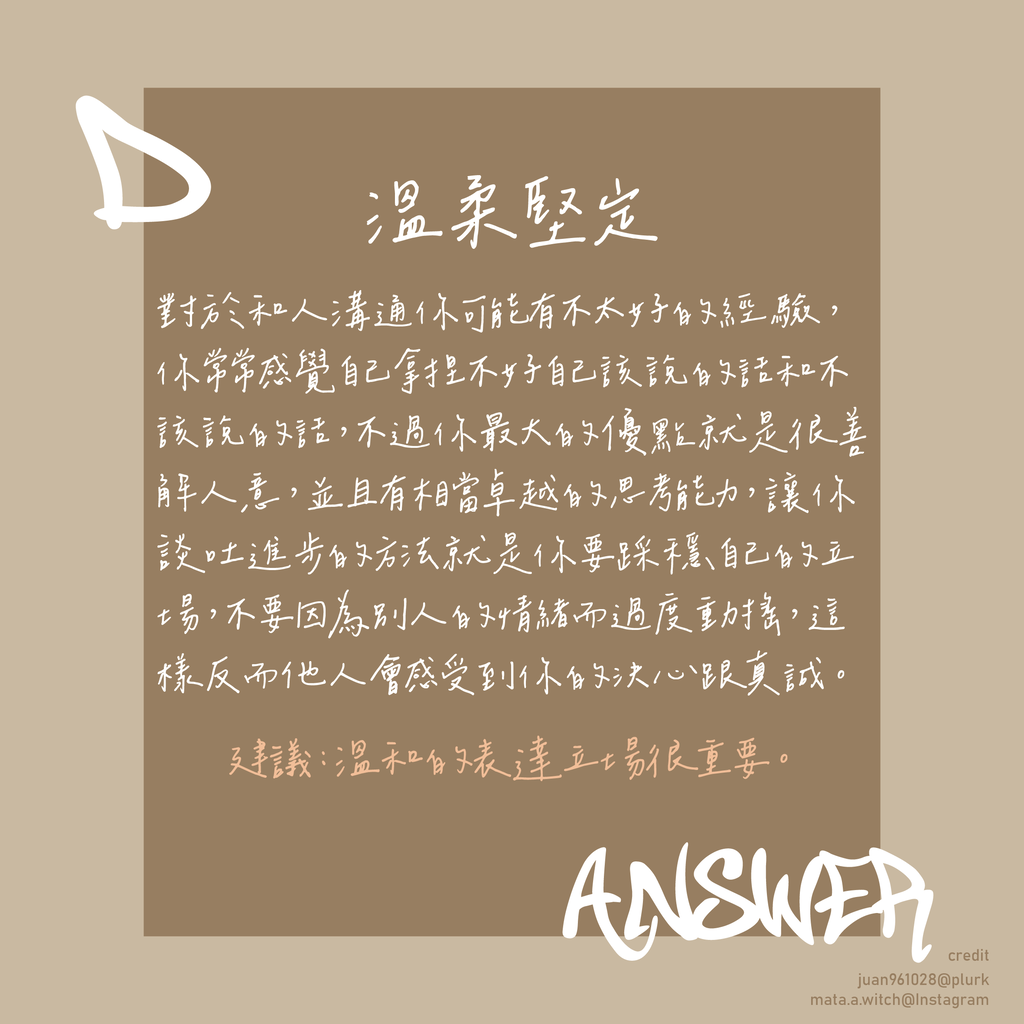 D
溫柔堅定
對於和人溝通你可能有不太好的經驗，
你常常感覺自己拿捏不好自己該說的話和不
該說的話，不過你最大的優點就是很善
解人意，並且有相當卓越的思考能力，讓你
談吐進步的方法就是你要踩穩自己的立
場，不要因為別人的情緒而過度動搖，這
樣反而他人會感受到你的決心跟真誠。
建議：溫和的表達立場很重要。
ANSWER
credit
juan961028@plurk
mata.a.witch@Instagram